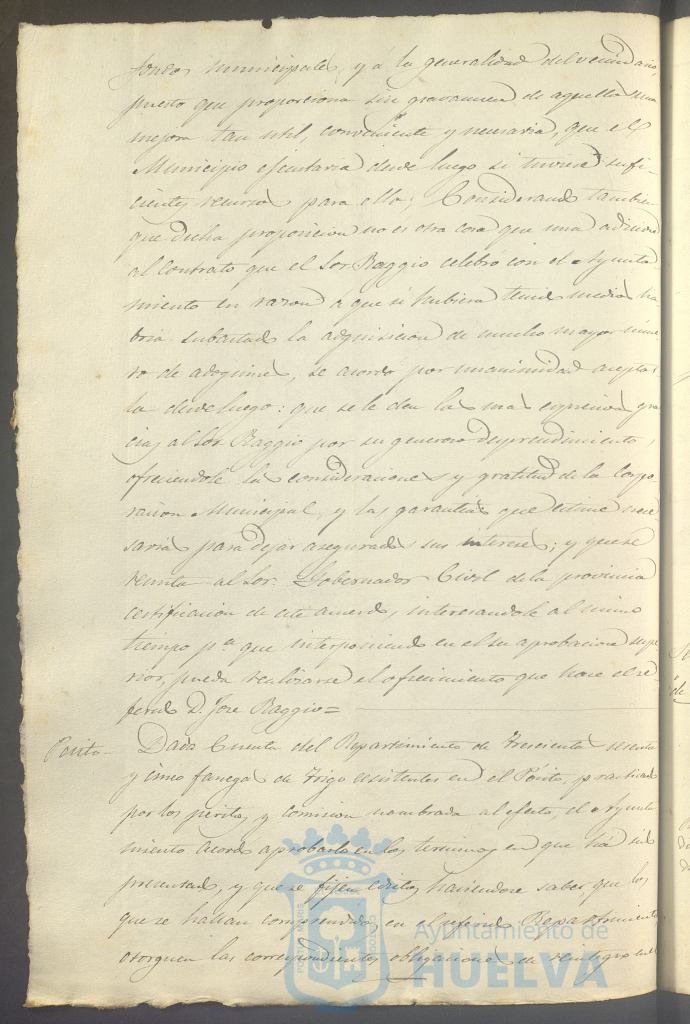 fondos municipales, y á la generalidad del vecindario,
puesto que proporciona sin gravamen de aquellos una
mejora tan util, conveniente y necesaria, que el
Municipio ejecutaria desde luego si tuviese sufi-
cientes recursos para ello; Considerando tambien
que dicha proposicion no es otra cosa que una adicion
al contrato que el Sor. Baggio celebró con el Ayunta-
miento en razon á que si hubiera tenido medios ha-
bria subastado la adquisicion de mucho mayor núme-
ro de adoquines, se acordo por unanimidad aceptar-
la desde luego: que se le den las mas expresivas gra-
cias al Sor Baggio por su generoso desprendimiento,
ofreciendole las consideraciones y gratitud de la Corpo-
racion Municipal, y las garantias que estime nece-
sarias para dejar asegurados sus intereses; y que se
remita al Sor. Gobernador Civil de la provincia
certificacion de este acuerdo, interesandole al mismo
tiempo pa. que interponiendo en el su aprobacion supe-
rior, pueda realizarse el ofrecimiento que hace el re-
ferido D. Jose Baggio=
Pósito- Dada Cuenta del Repartimiento de trescientas sesenta
y cinco fanegas de trigo existentes en el Pósito, practicado
por los peritos y comision nombrada al efecto, el Ayunta-
miento acordó aprobarlo en los terminos en que há sido
presentado, y que se fijen edictos haciendose saber que los
que se hallan comprendidos en el referido Repartimiento
otorguen las correspondientes obligaciones de reintegro
Ayuntamiento de
HUELVA